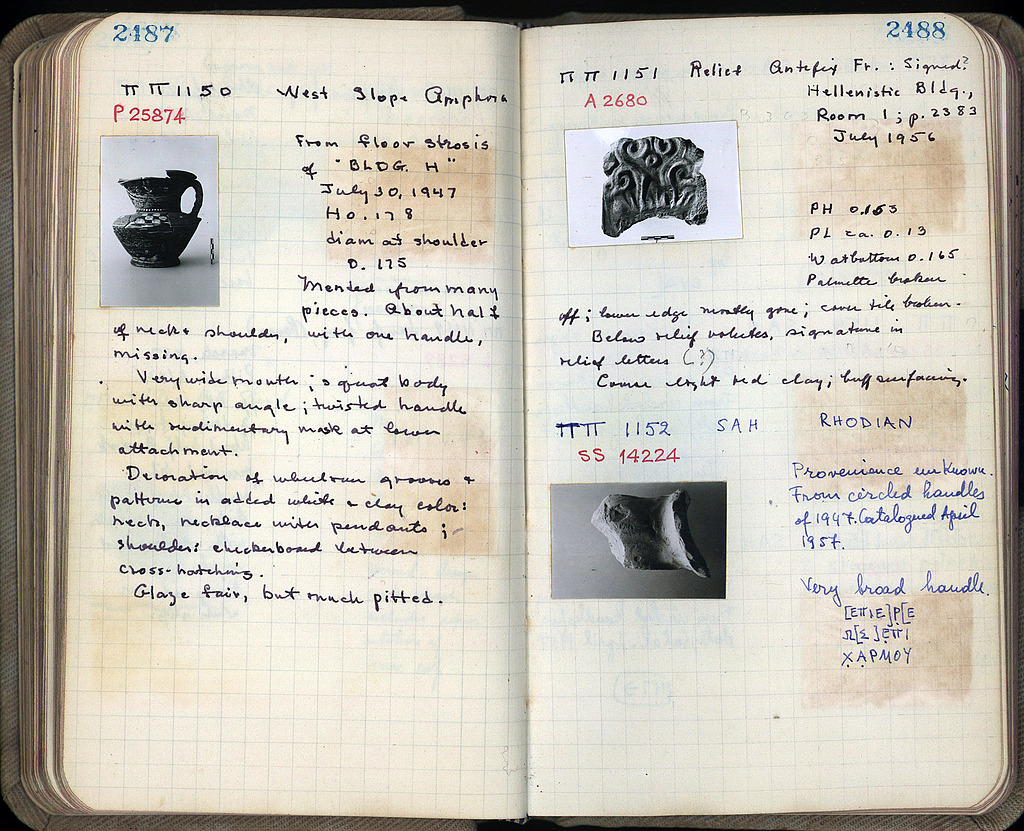 2487
ΠΠ 1150 West Slope Amphora
P 25874
From floor strosis
of "BLDG. H"
July 30, 1947
H 0.178
diam at shoulder
0.175
Mended from many
pieces. About half
of neck & shoulder, with one handle,
missing.
Very wide mouth; squat body
with sharp angle; twisted handle
with rudimentary mask at lower
attachment.
Decoration of wheelrun grooves &
patterns in added white & clay color:
neck, necklace with pendants;
shoulder: checkerboard between
cross-hatching.
Glaze fair, but much pitted.
2488
ΠΠ 1151 Relief Antefix Fr.: Signed?
A 2680
Hellenistic Bldg.,
Room 1; p. 2383
July 1956
PH 0.153
PL ca. 0.13
W at bottom 0.165
Palmette broken
off; lower edge mostly gone; cover tile broken.
Below relief volutes, signature in
relief letters (?)
Coarse light red clay; buff surfacing.
ΠΠ 1152 SAH RHODIAN
SS 14224
Provenience unknown.
From circled handles
of 1947. Catalogued April
1957.
Very broad handle.
[ΕΠΙΕ]Ρ[Ε
Ω[Σ]ΕΠΙ
ΧΑΡΜΟΥ